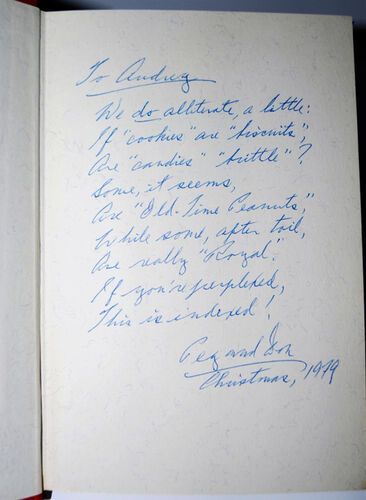 To Audrey
We do alliterate, a little:
If "cookies" are "biscuits",
Are "candies" "brittle"?
Some, it seems,
Are "Old-Time Peanuts,"
While some, after toil,
Are really "Royal".
If you're perplexed,
This is indexed!
Peg and Don
Christmas, 1979